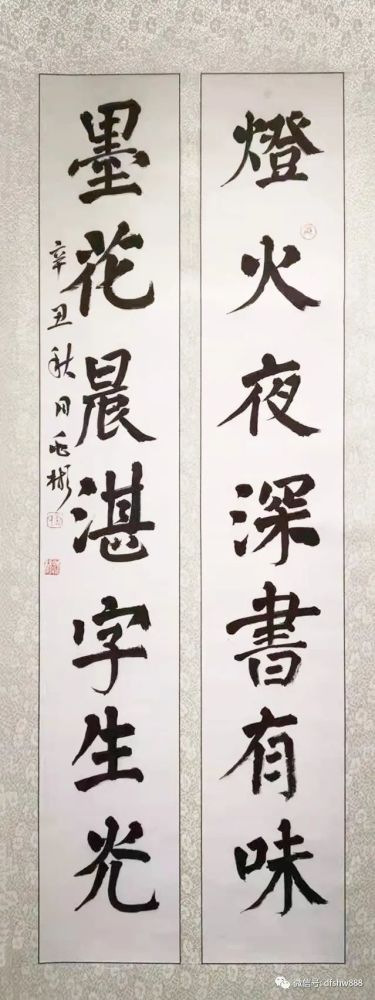 燈火夜深書有味
墨花晨湛字生光
辛丑秋月毛彬
微信号: dfshw888